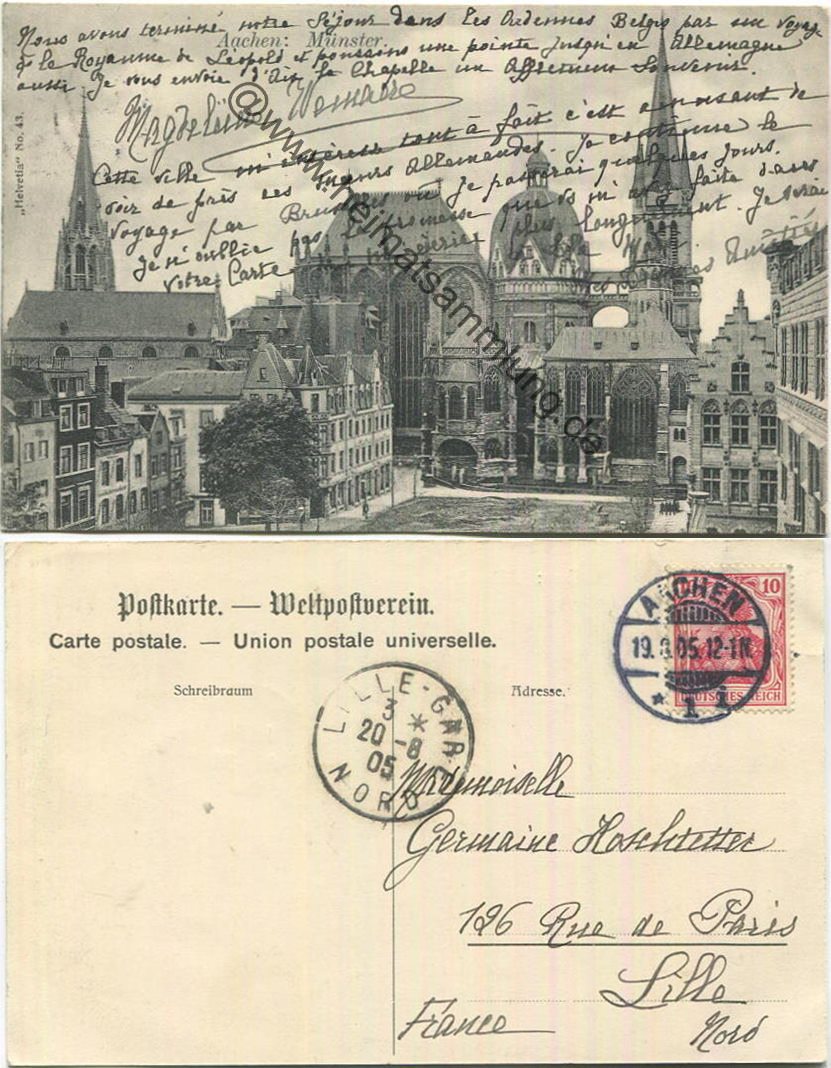 Nous avons terminé notre Séjour dans les Ardennes Belges par un voyage
Aachen: Münster.
ds le Royaume de Léopold et poussons une pointe jusqu'en Allemagne
aussi je vous envoie d'Aix la Chapelle un Affectueux Souvenir.
Magdeleine
„Helvetia" No. 43.
Cette ville m'intéresse tout à fait c'est amusant de
voir de près ces mœurs Allemandes. Je continue le
voyage par Bruxelles où je passerai quelques jours.
Je n'oublie pas la promesse que vs m'avez faite dans
votre Carte
plus longuement. Je serai
@www.heimatsammlung.de
Postkarte. — Weltpostverein.
Carte postale. — Union postale universelle.
Schreibraum
Adresse.
AACHEN
19. 8. 05. 12-1 N.
* 1 i
10
DEUTSCHES REICH
LILLE-GARE
3 *
20 -8
05
NORD
Mademoiselle
Germaine Hoschtetter
126 Rue de Paris
Lille
France
Nord